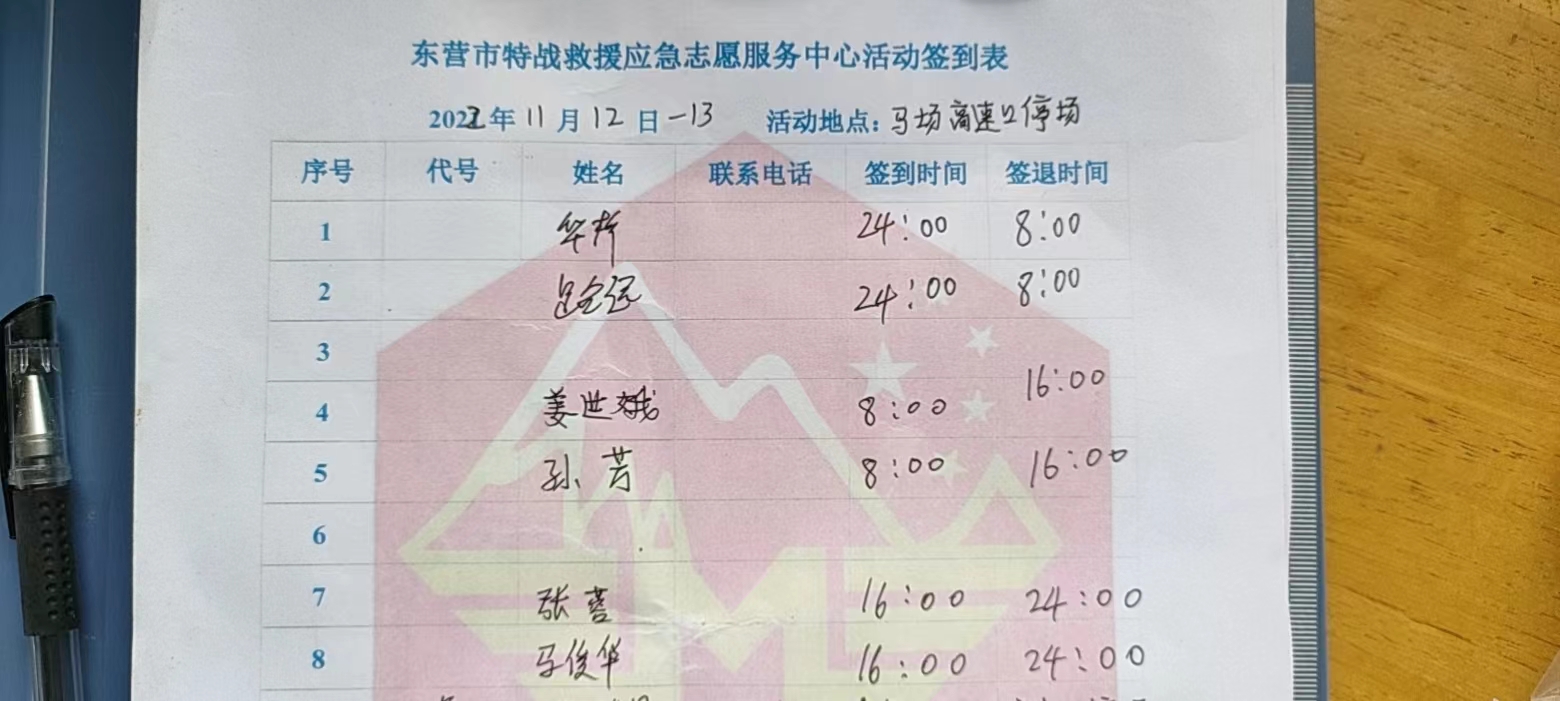 东营市特战救援应急志愿服务中心活动签到表
2022年11月12日-13 活动地点:马场高速口停场
序号 代号 姓名 联系电话 签到时间 签退时间
1 华 24:00 8:00
2 24:00 8:00
3
4 姜世娥 8:00 16:00
5 孙芳 8:00 16:00
6
7 张 16:00 24:00
8 马俊华 16:00 24:00